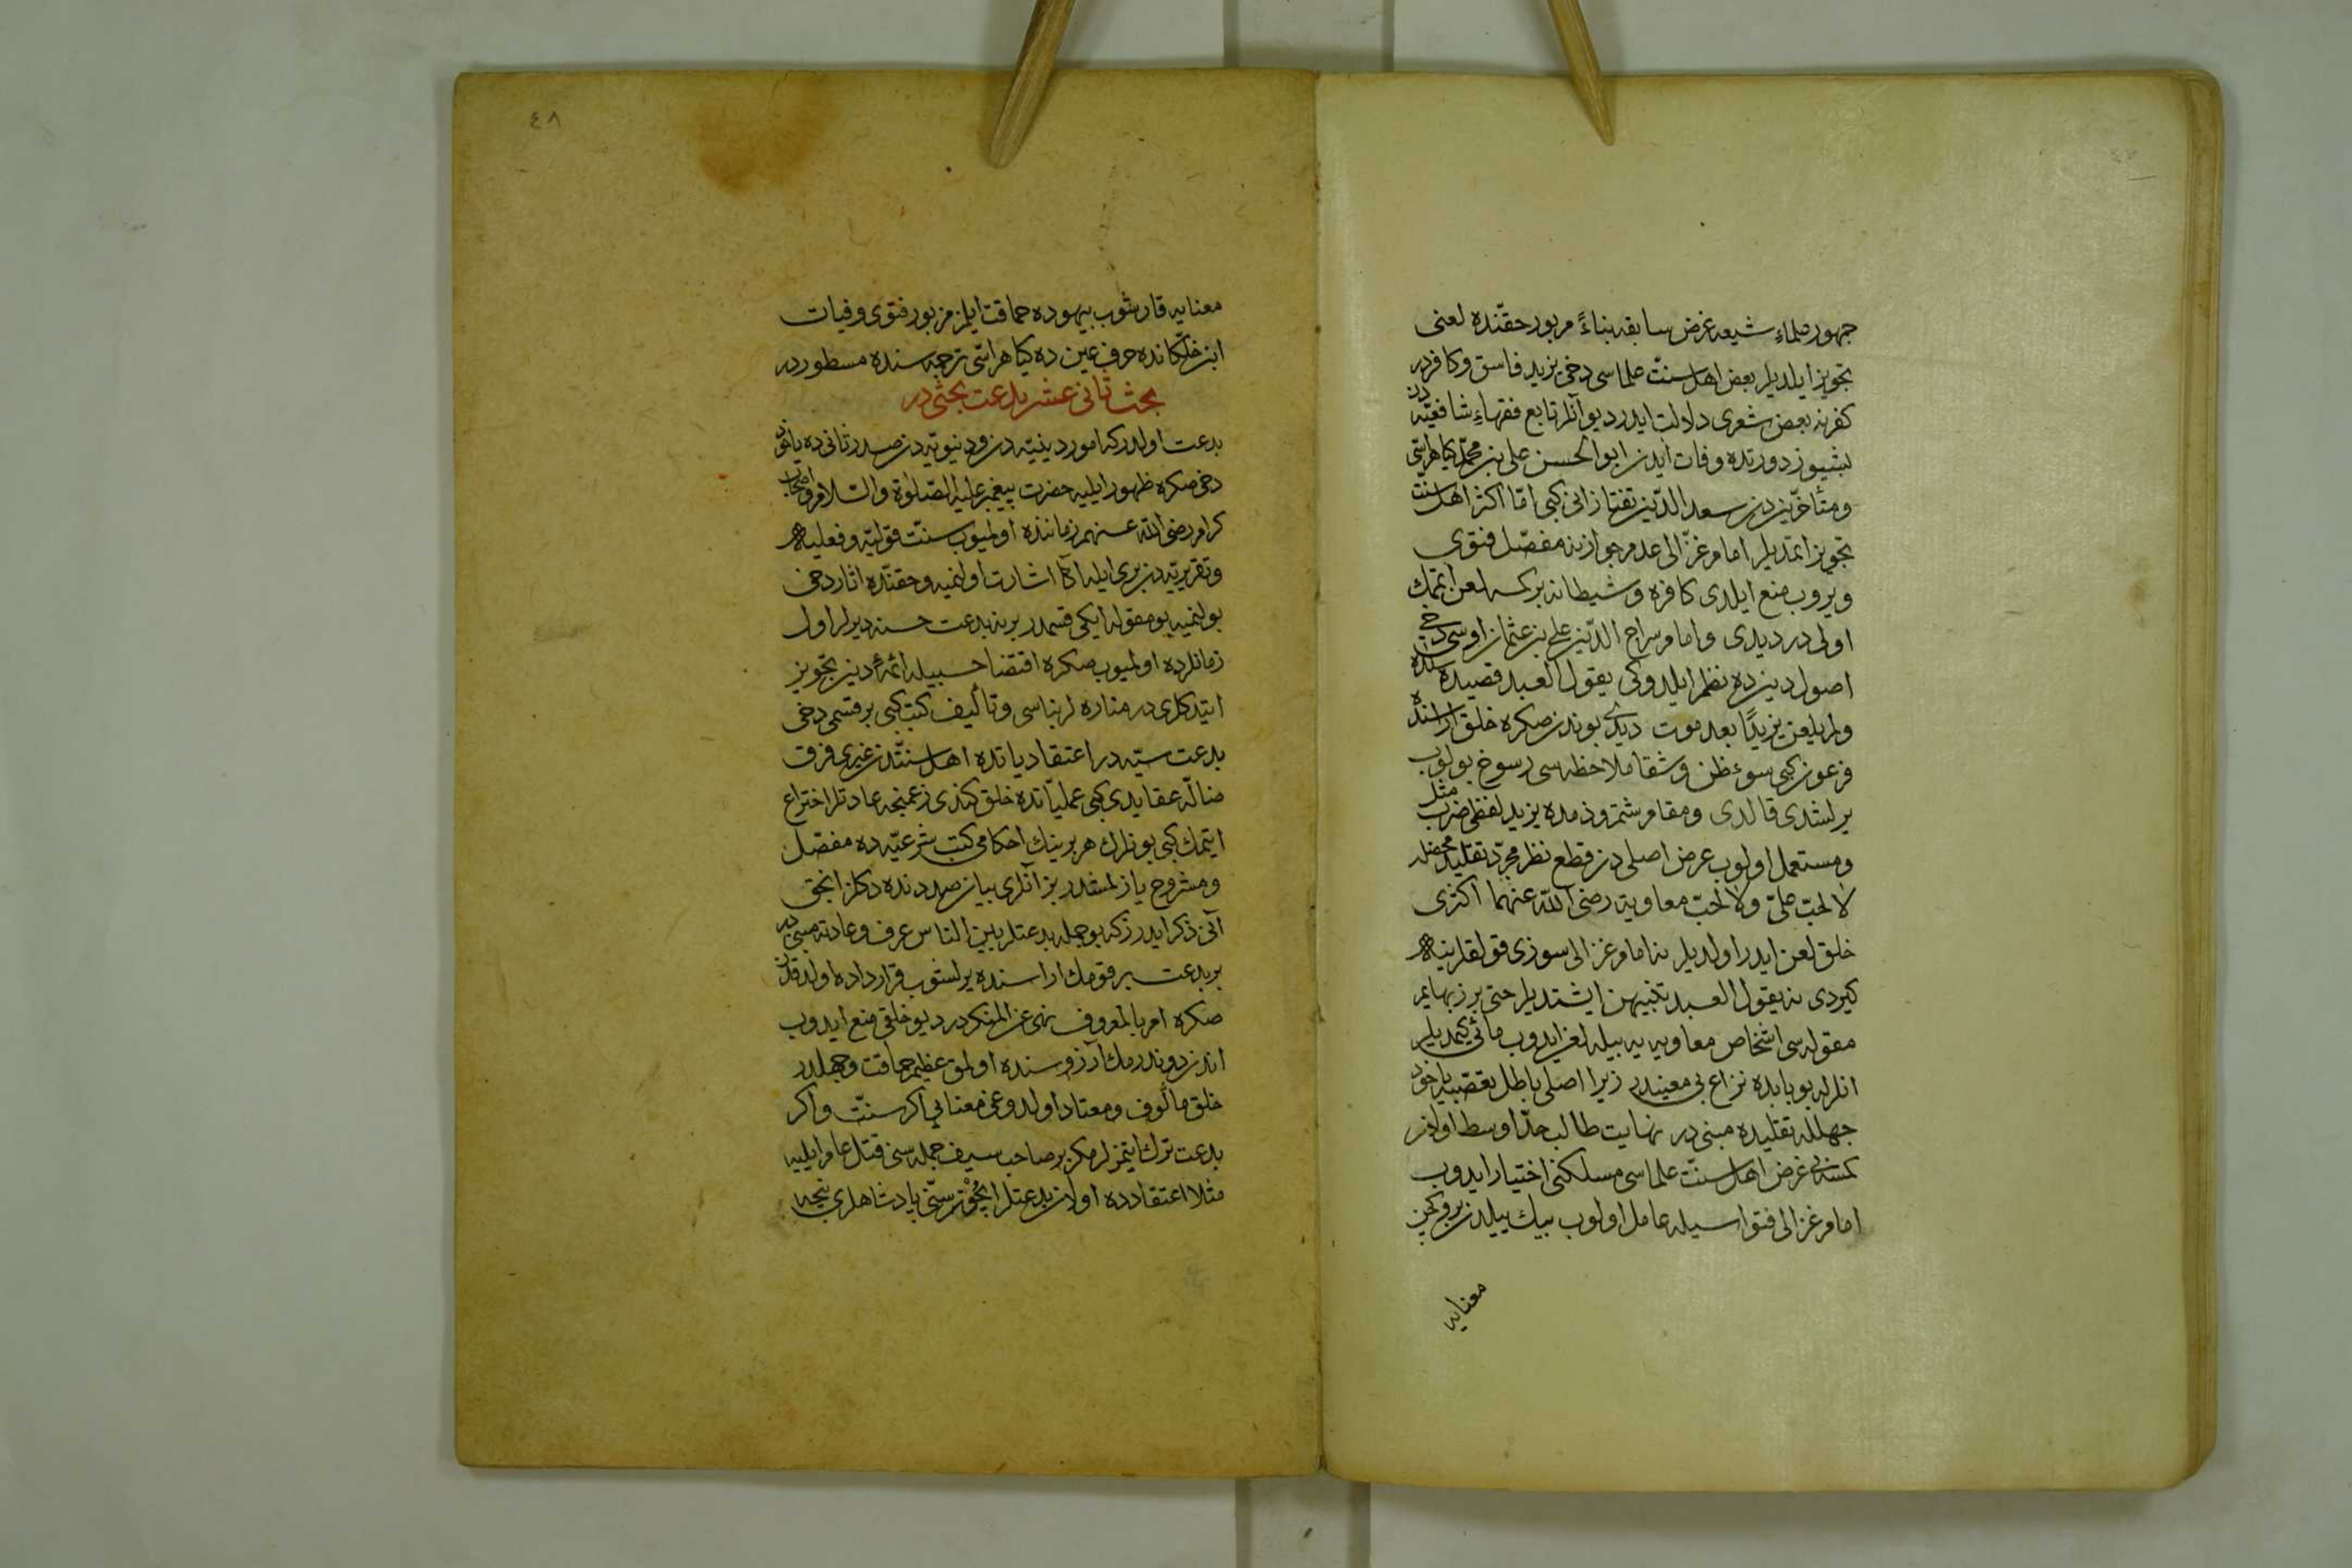 جمهور علماء شيعه غرض سابقه بناءً مزبور حقنده لعنى
تجويز ايلديلر بعض اهل سنت علماسى دخى يزيد فاسق وكافردر
كفرينه بعض شعرى دلالت ايدر ديو آنلر تابع فقهاء شافعيّه دن
بشيوز دورتده وفات ايدن ابو الحسن على بن محمّد كيا هراسّى
ومتأخّرين دن سعد الدّين تفتازانى كبى امّا اكثر اهل سنت
تجويز اتمديلر امام غزّالى عدم جوازينه مفصّل فتوى
ويروب منع ايلدى كافره وشيطانه بركسه لعن اتمك
اولى در ديدى وامام سراج الدّين على بن عثمان اوسى دخى
اصول دينده نظم ايلدوكى يقول العبد قصيده سنده
ولم يلعن يزيدًا بعد موت ديدى بوندن صكره خلق اراسنده
فرعون كبى سوء ظن وشقا ملاحظه سى رسوخ بولوب
يرلشدى قالدى ومقام شتم وذمده يزيد لفظى ضرب مثل
ومستعمل اولوب غرض اصلى دن قطع نظر مجرّد تقليد محضله
لا لحبّ علىّ ولا لحبّ معاوية رضى الله عنهما اكثرى
خلق لعن ايدر اولديلر نه امام غزالى سوزى قولقلرينه
كيردى نه يقول العبد تنبيهن ايشتديلر حتى برز بهايم
مقوله سى اشخاص معاويه يه بيله لعن ايدوب ماتى يمديلر
انلرله بو بابده نزاع بى معنيدر زيرا اصلى باطل تعصّبه ياخود
جهلله تقليده مبنى در نهايت طالب حدّ اوسط اولان
كمسنه بى غرض اهل سنّت علماسى مسلكنى اختيار ايدوب
امام غزالى فتواسيله عامل اولوب بيك ييلدن برو كچن
معنايه
٤٨
معنايه قارشوب بيهوده حماقت ايلمز مزبور فتوى وفيات
ابن خلّكانده حرف عين ده كيا هراسّى ترجمه سنده مسطوردر
بحث ثانى عشر بدعت بحثى در
بدعت اولدركه امور دينيّه دن ودنيويّه دن صدر ثانى ده ياخود
دخى صكره ظهور ايليه حضرت پيغمبر عليه الصّلوة والسّلام واصحاب
كرام رضى الله عنهم زماننده اولميوب سنّت قوليّه وفعليه
وتقريريّه دن برى ايله اكا اشارت اولنميه وحقنده اثار دخى
بولنميه بو مقوله ايكى قسمدر برينه بدعت حسنه ديرلر اول
زمانلرده اولميوب صكره اقتضا حسبيله ائمّهٔ دين تجويز
ايتدكلرى در مناره لر بناسى وتأليف كتب كبى برقسمى دخى
بدعت سيّئه در اعتقادياتده اهل سنّتدن غيرى فرق
ضالّه عقايدى كبى عمليّاتده خلق كندى زعمنجه عادتلر اختراع
ايتمك كبى بونلرك هر برينك احكامى كتب شرعيّه ده مفصّل
ومشروح يازلمشدر بز آنلرى بيان صددنده دكلز انجق
آنى ذكر ايدرزكه بو جمله بدعتلر بين الناس عرف وعادته مبنى در
بر بدعت بر قومك اراسنده يرلشوب قرارداده اولدقدن
صكره امر بالمعروف نهى عن المنكردر ديو خلقى منع ايدوب
اندن دوندرمك آرزوسنده اولمق عظيم حماقت وجهلدر
خلق مألوف ومعتاد اولدوغى معنايى اكر سنّت واكر
بدعت ترك ايتمزلر مكر بر صاحب سيف جمله سنى قتل عام ايليه
مثلا اعتقادده اولان بدعتلر ايچون سنّى پادشاهلرى نيجه